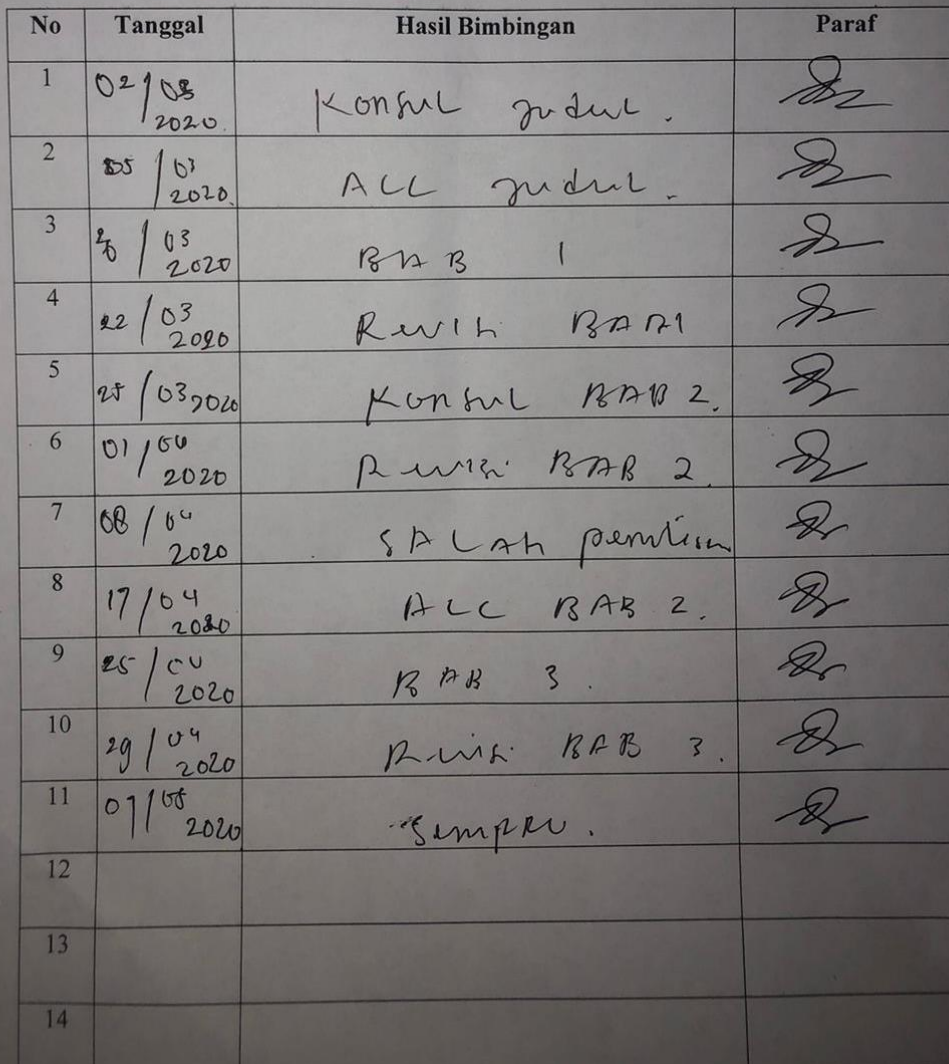 No Tanggal Hasil Bimbingan Paraf
1 02/03 2020. Konsul judul.
2 05/03 2020. ACC judul.
3 20/03 2020 BAB 1
4 22/03 2020 Revisi BAB 1
5 25/03 2020 Konsul BAB 2.
6 01/04 2020 Revisi BAB 2.
7 08/04 2020 SALAh penulisan
8 17/04 2020 ACC BAB 2.
9 25/04 2020 BAB 3.
10 29/04 2020 Revisi BAB 3.
11 07/05 2020 Sempro.
12
13
14